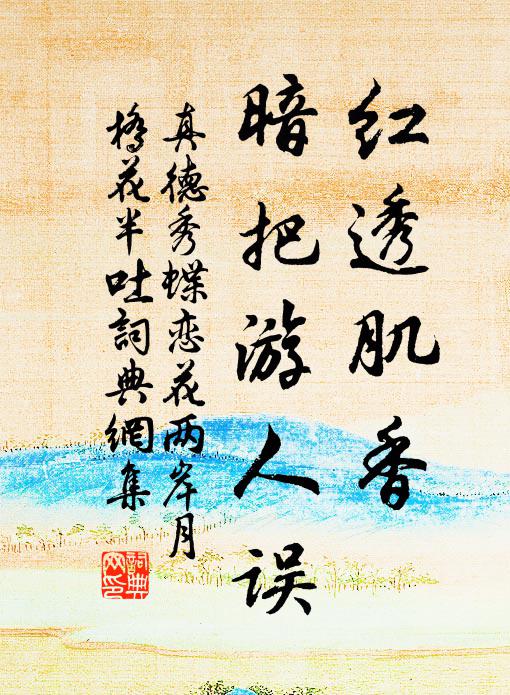 红透肌香
暗把游人误
真德秀蝶恋花两岸月
桥花半吐詞典網集
詞典